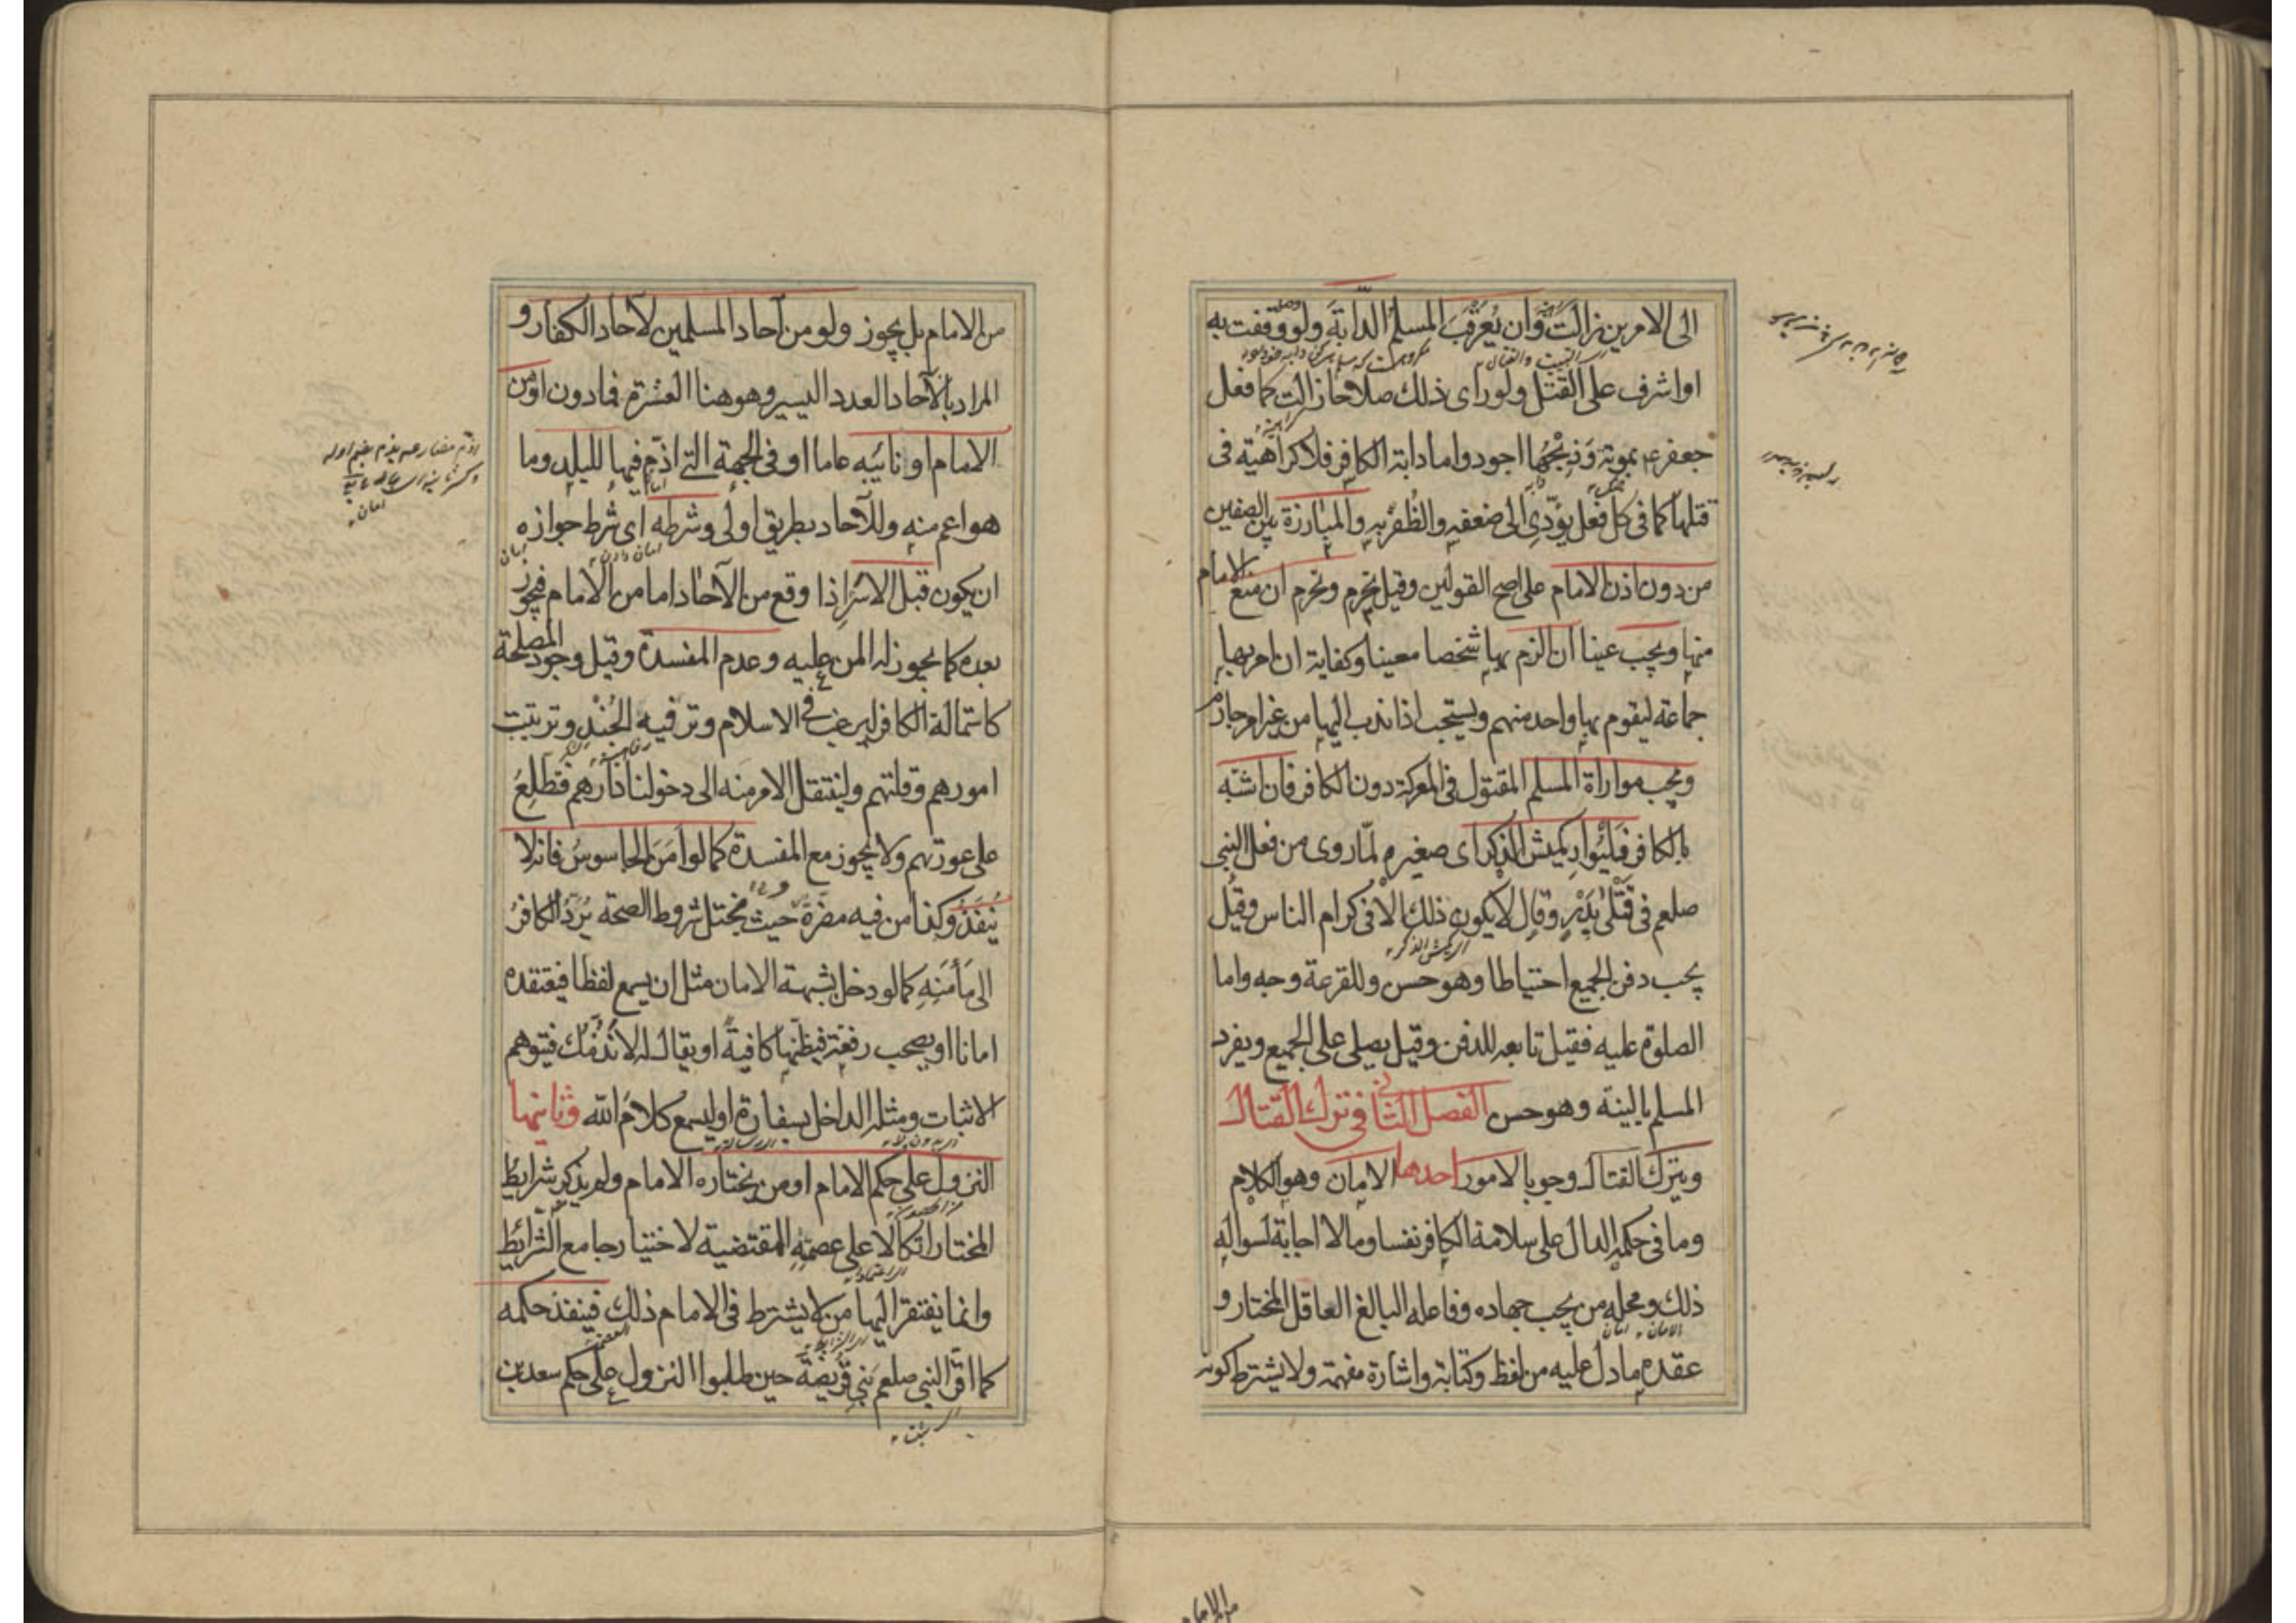 الى الامرين زالت وان يُعَرْقَبَ المسلم الدابّةَ ولو وقفت به
او اشرف على القتل ولو راى ذلك صلاحا زالت كما فعل
جعفر بموتة وَذبْحُها اجود واما دابة الكافر فلا كراهية فى
قتلها كما فى كل فعل يؤدى الى ضعفه والظفر به والمبارزة بين الصفين
من دون اذن الامام على اصح القولين وقيل تحرم وتحرم ان منع الامام
منها ويجب عينا ان الزم بها شخصا معينا وكفاية ان امر بها
جماعة ليقوم بها واحد منهم ويستحب اذا ندب اليها من غير امر جازم
ويجب مواراة المسلم المقتول فى المعركة دون الكافر فان اشتبه
بالكافر فَلْيُوارِ كميش الذكر اى صغيره لمّا روى من فعل النبى
صلعم فى قَتْلىٰ بَدْرٍ وقال لا يكون ذلك الا فى كرام الناس وقيل
يجب دفن الجميع احتياطا وهو حسن وللقرعة وجه واما
الصلوة عليه فقيل تابعه للدفن وقيل يصلى على الجميع ويفرد
المسلم بالنية وهو حسن الفصل الثانى فى ترك القتال
ويترك القتال وجوبا لامور احدها الامان وهو الكلام
وما فى حكمه الدال على سلامة الكافر نفسا ومالا اجابة لسواله
ذلك ومحله من يجب جهاده وفاعله البالغ العاقل المختار و
عقده ما دل عليه من لفظ وكتابة واشارة مفهمة ولا يشترط كونه
من الامام
من الامام بل يجوز ولو من آحاد المسلمين لآحاد الكفار و
المراد بالآحاد العدد اليسير وهو هنا العشرة فما دون او من
الامام او نائبه عاما او فى الجهة التى اذمّ فيها للبلد وما
هو اعم منه وللآحاد بطريق اولى وشرطه اى شرط جوازه
ان يكون قبل الاسر اذا وقع من الآحاد اما من الامام فيجوز
بعده كما يجوز له المن عليه وعدم المفسدة وقيل وجود المصلحة
كاستمالة الكافر ليرغب فى الاسلام وترفيه الجُنْدِ وترتيب
امورهم وقلتهم ولينتقل الامر منه الى دخولنا دارَهم فنطلع
على عورتهم ولا يجوز مع المفسدة كما لو اَمَنَ الجاسوس فانه لا
يُنفَذُ وكذا من فيه مضرة وحيث يختل شروط الصحة يُرَدّ الكافر
الى مَأمَنِهِ كما لو دخل بشبهة الامان مثل ان يسمع لفظا فيعتقده
امانا او يصحب رفقة فيظنها كافية او يقال له لا نُذمّك فيتوهم
الاثبات ومثله الداخل بسفارة او ليسمع كلام الله وثانيها
النزول على حكم الامام او من يختاره الامام ولم يذكر شرايط
المختار اتكالا على عصمته المقتضية لاختيار جامع الشرائط
وانما يفتقر اليها من لا يشترط فى الامام ذلك فينفذ حكمه
كما اقر النبى صلعم بَنى قُرَيضَة حين طلبوا النزول على حكم سعد بن